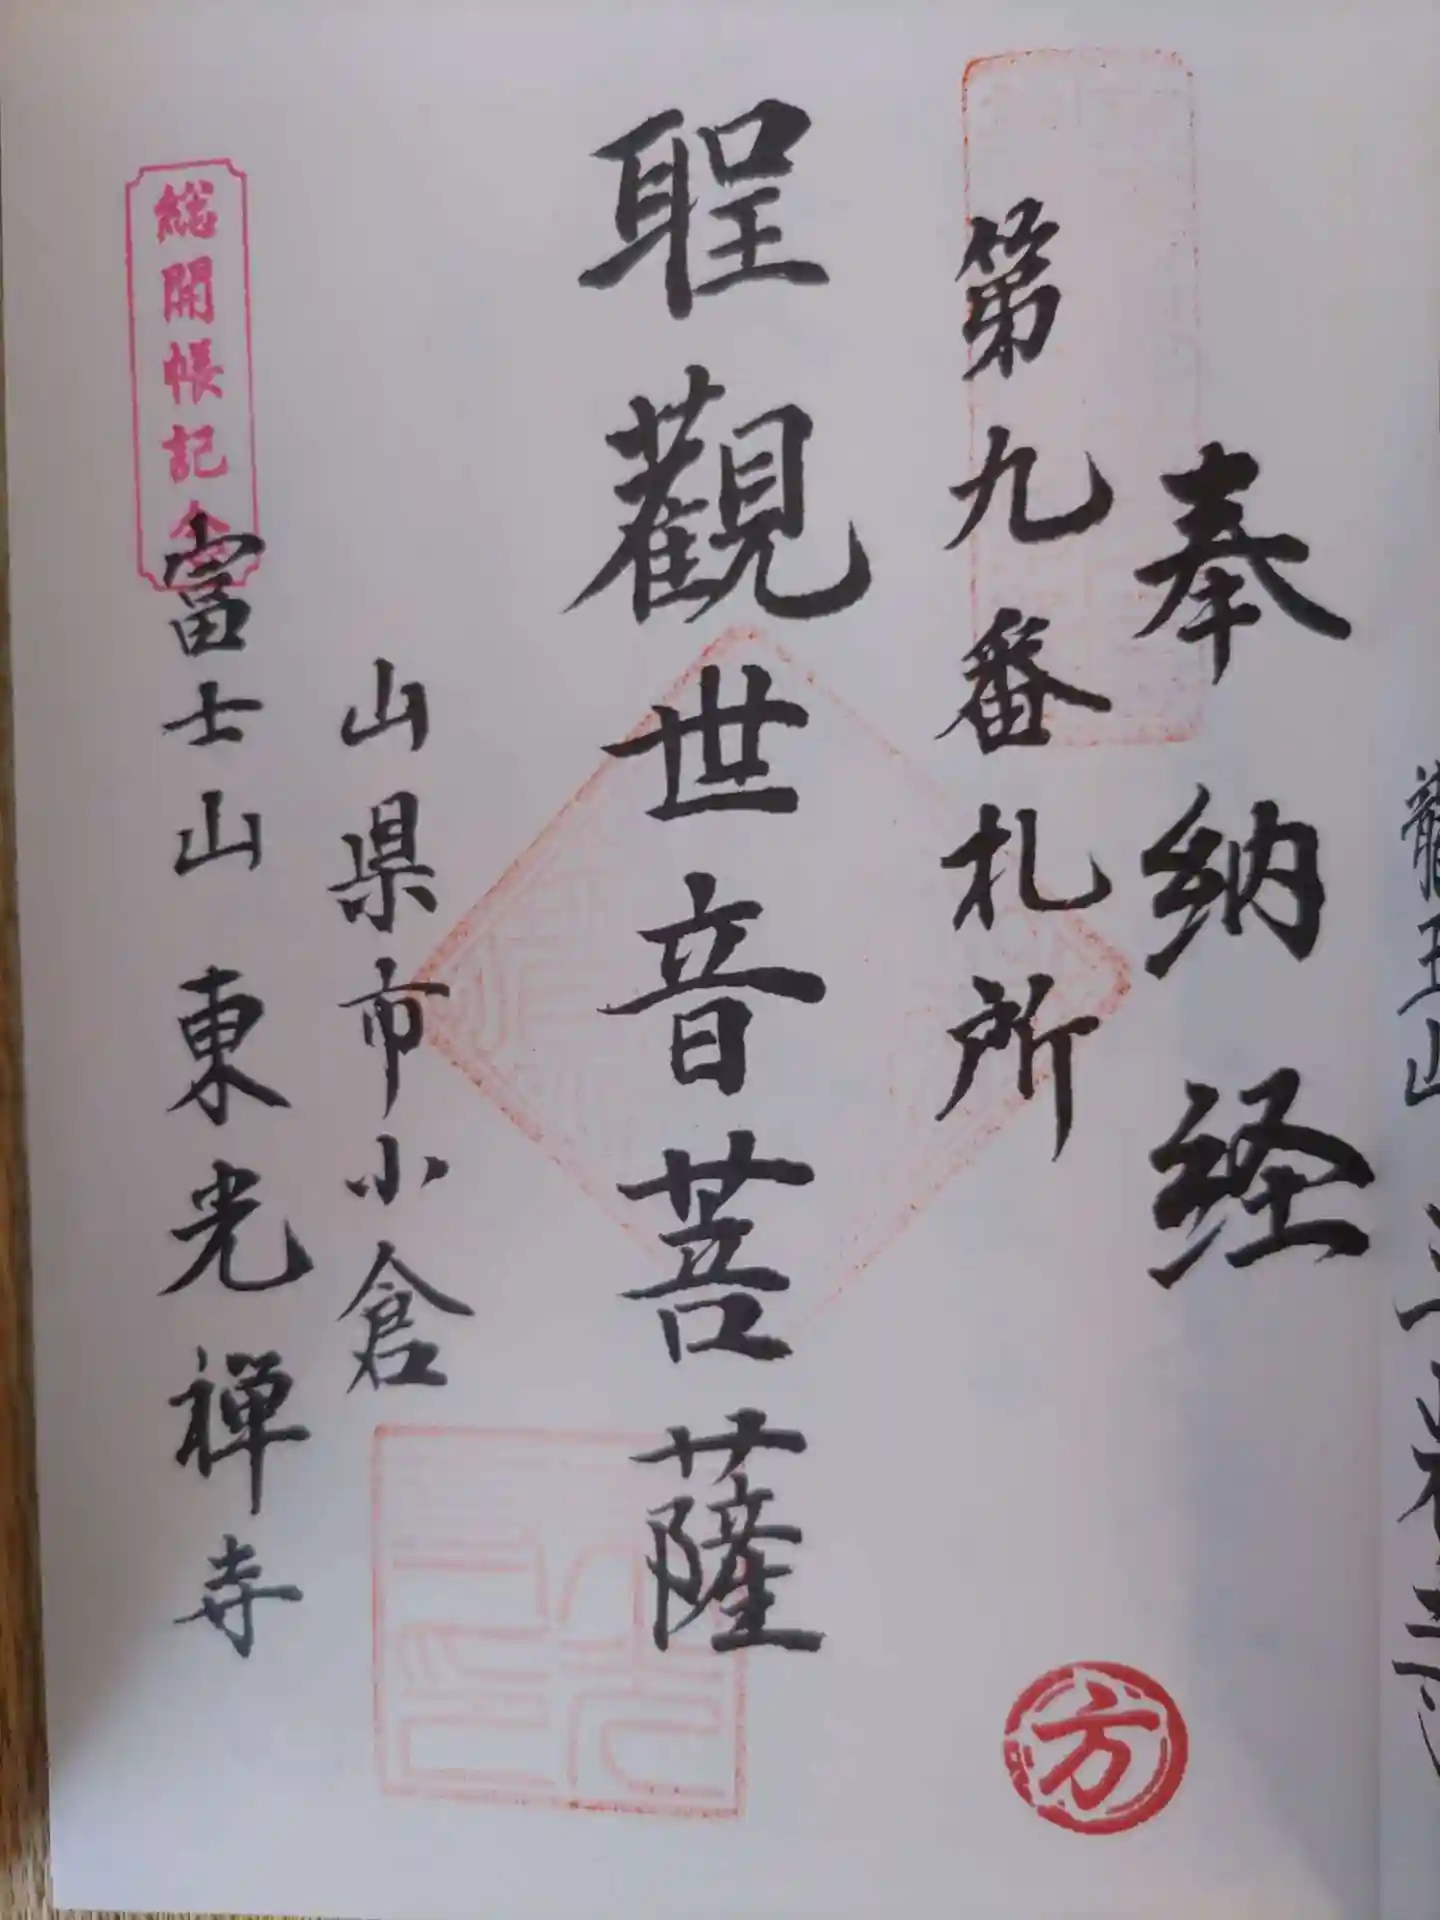 奉納経
第九番札所
聖觀世音菩薩
山県市小倉
富士山 東光禅寺
総開帳記念
方